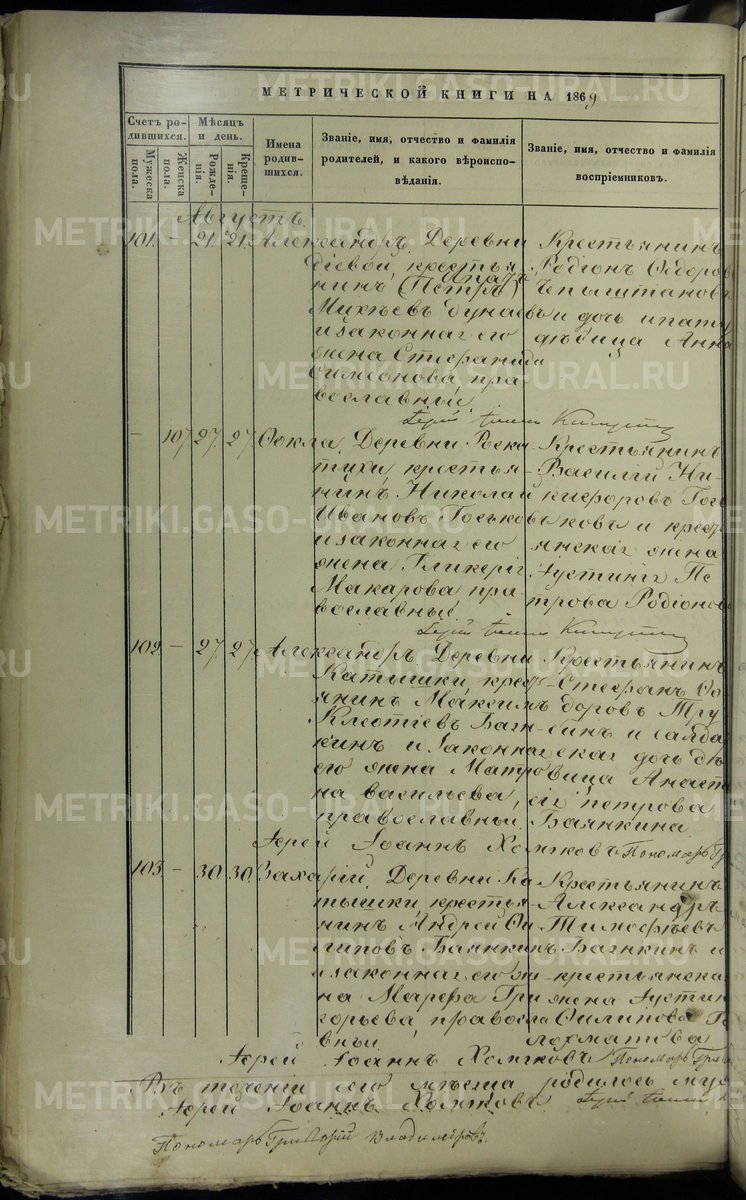 МЕТРИЧЕСКОЙ КНИГИ НА 1869
Счетъ ро-
дившихся.
Мужеска
пола.
Женска
пола.
Мѣсяцъ
и день.
Рожде-
нія.
Креще-
нія.
Имена
родив-
шихся.
Званіе, имя, отчество и фамилія
родителей, и какого вѣроиспо-
вѣданія.
Званіе, имя, отчество и фамилія
воспріемниковъ.
Августъ
101. – 21. 21. Александръ.
Деревни
крестья
нинъ (Петръ)
Михѣевъ Дунаевъ
и законная его
жена Стефанида
Симеонова, пра
вославный.
Крестьянинъ
Родіонъ Ѳедоровъ
и дочь
дѣвица Анна
– 107. 27. 27. Ѳекла.
Деревни Роска
тухи крестья-
нинъ Николай
Ивановъ Госьковъ
и законная его
жена Гликерія
Макарова пра-
вославный
Крестьянинъ
Василій Ни-
кифоровъ Гось
ковъ и крест
янская жена
Устинія Пе
трова Родіонов
102. – 27. 27. Александръ.
Деревни
Катышки, крест
янинъ Максимъ
Баян-
кинъ и законная
его жена Матро
на васильева,
православный.
Крестьянинъ
Стефанъ Ѳе
доровъ Тру
бинъ и солда
ская дочь дѣ
вица Анаст
сія петрова
Баянкина.
Іерей Іоаннъ Хомяковъ Пономарь Гр
103. – 30. 30. Захарій.
Деревни Ка
тышки, крестья-
нинъ Андрей Фи
липовъ Баянкинъ
и законная его же
на Марфа Гри
горьева, правосла
вный.
Крестьянинъ
Александръ
Тимофѣевъ
Баянкинъ и
крестьянска
жена Устин
Филипова
Іерей Іоаннъ Хомяковъ Пономарь Гри
Въ теченіи сего мѣсяца родилось муж
Іерей Іоаннъ Хомяковъ
Пономарь Григорій Владиміровъ.
METRIKI.GASO-URAL.RU